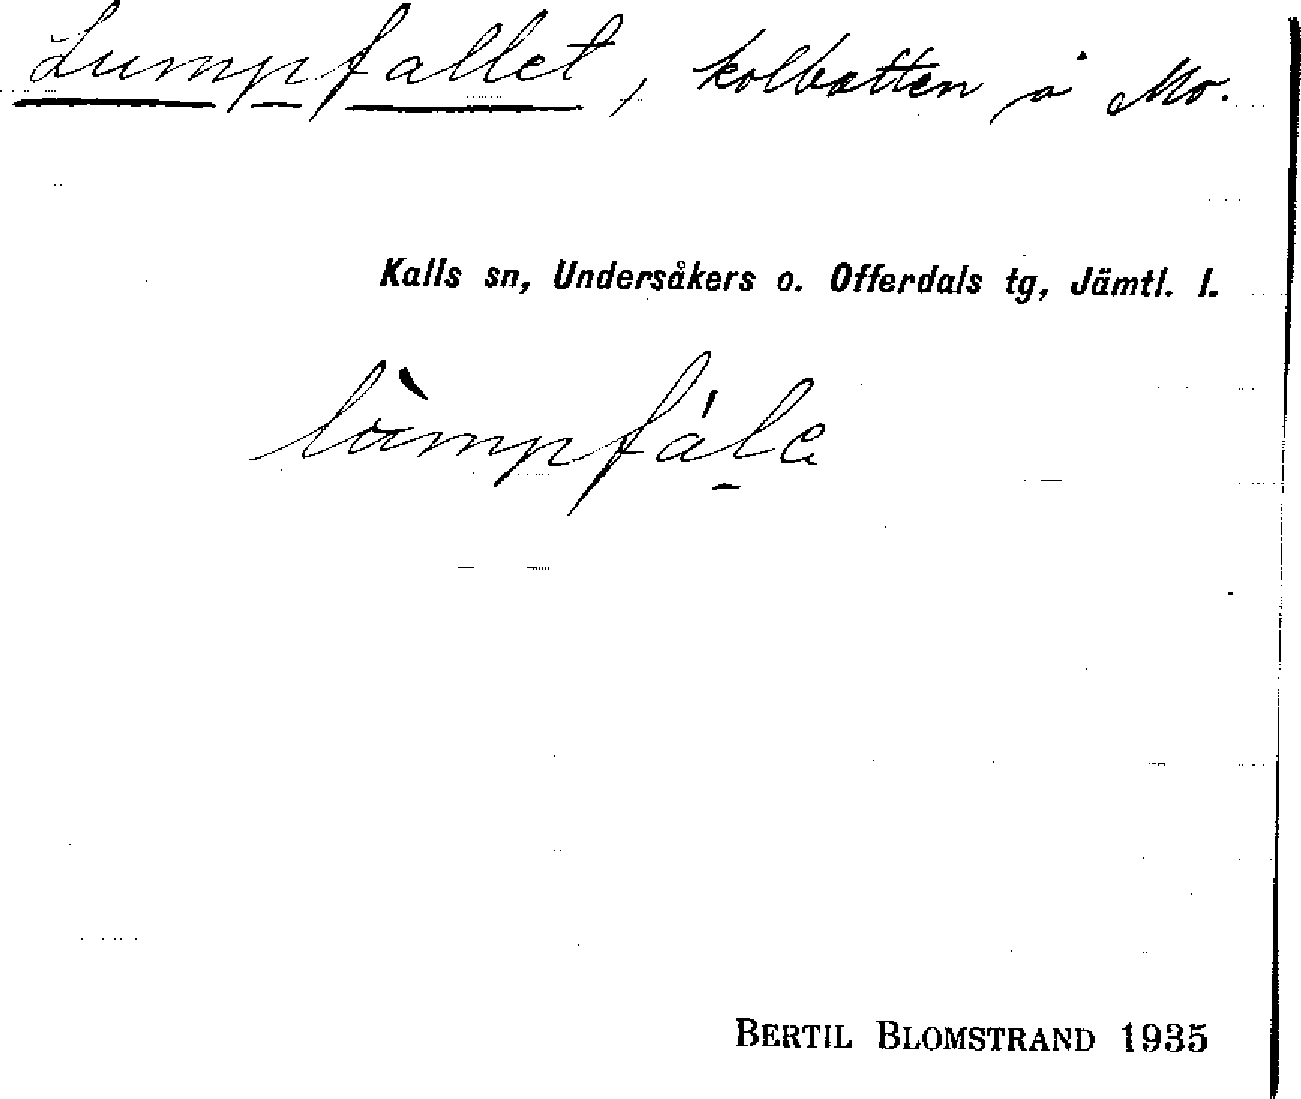 Lumpfallet, kolbotten å Mo.
Kalls sn, Undersåkers o. Offerdals tg, Jämtl. l.
BERTIL BLOMSTRAND 1935